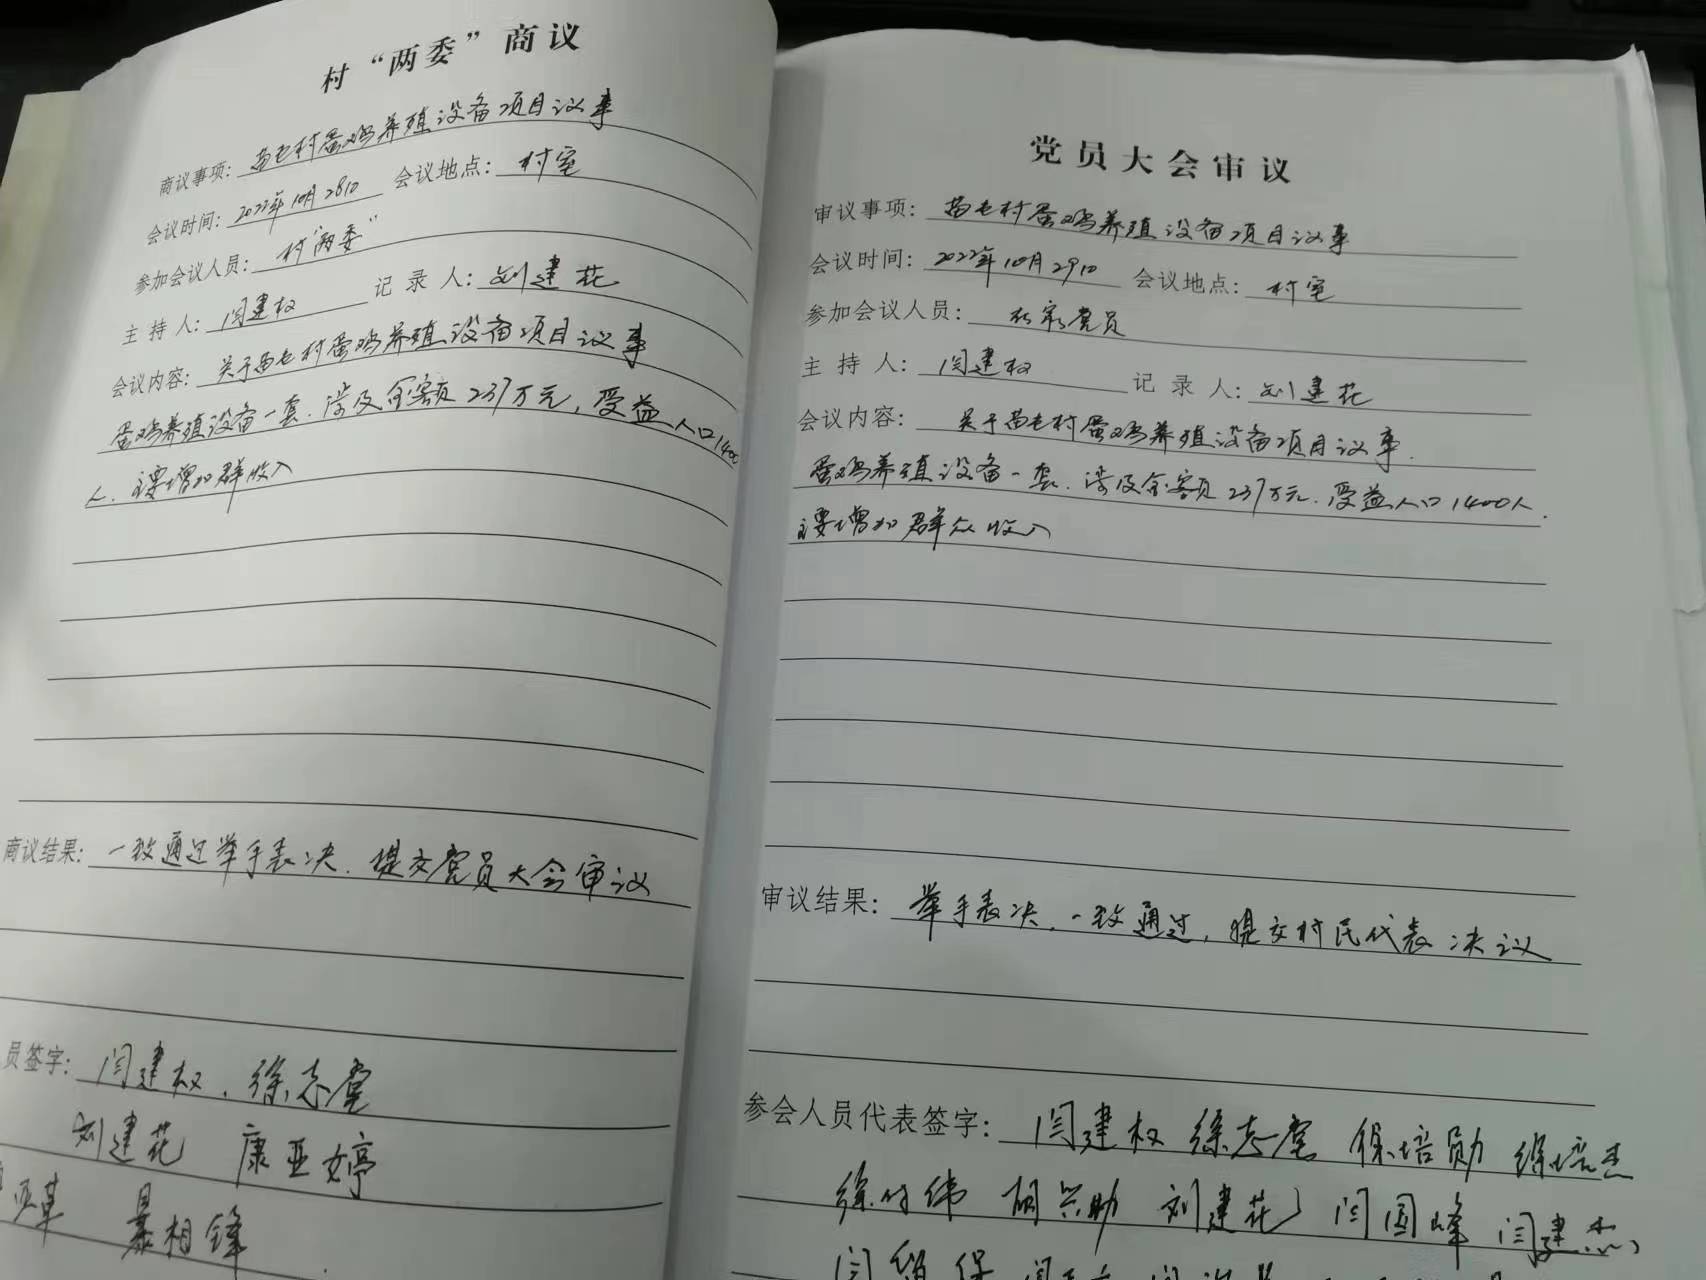 村“两委”商议
商议事项：苗屯村蛋鸡养殖设备项目议事
会议时间：2022年10月28日 会议地点：村室
参加会议人员：村“两委”
主持人：闫建权 记录人：刘建花
会议内容：关于苗屯村蛋鸡养殖设备项目议事
蛋鸡养殖设备一套.涉及金额237万元，受益人口1400
人.主要增加群收入
商议结果：一致通过举手表决.提交党员大会审议
员签字：闫建权.徐志党
刘建花 康亚婷
暴相锋
党员大会审议
审议事项：苗屯村蛋鸡养殖设备项目议事
会议时间：2022年10月29日 会议地点：村室
参加会议人员：在家党员
主持人：闫建权 记录人：刘建花
会议内容：关于苗屯村蛋鸡养殖设备项目议事.
蛋鸡养殖设备一套.涉及金额237万元.受益人口1400人.
主要增加群众收入
审议结果：举手表决.一致通过，提交村民代表决议
参会人员代表签字：闫建权 徐志党 徐培勋 徐培杰
徐付伟 胡兴助 刘建花 闫国峰 闫建杰